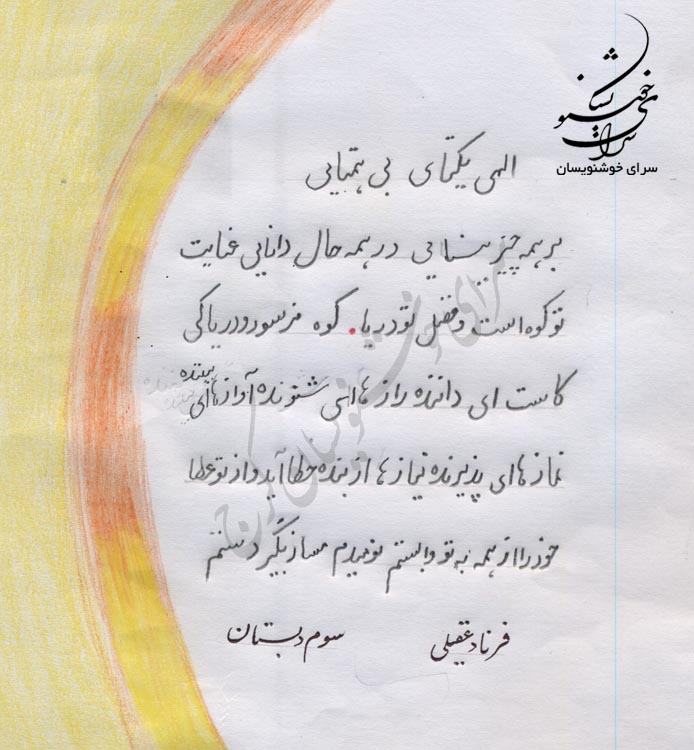 سرای خوشنویسان
سرای خوشنویسان
الهی یکتای بی همتایی
بر همه چیز بینایی در همه حال دانایی عنایت
تو کوه است و فضل تو دریا. کوه فرسود و دریا کی
کاست ای داننده رازهای شنونده آوازهای بیننده
نمازهای پذیرنده نیازها از بنده خطا آید و از تو عطا
خود را از همه به تو وابستم نومیدم مساز بگیر دستم
فرناد عقیلی سوم دبستان